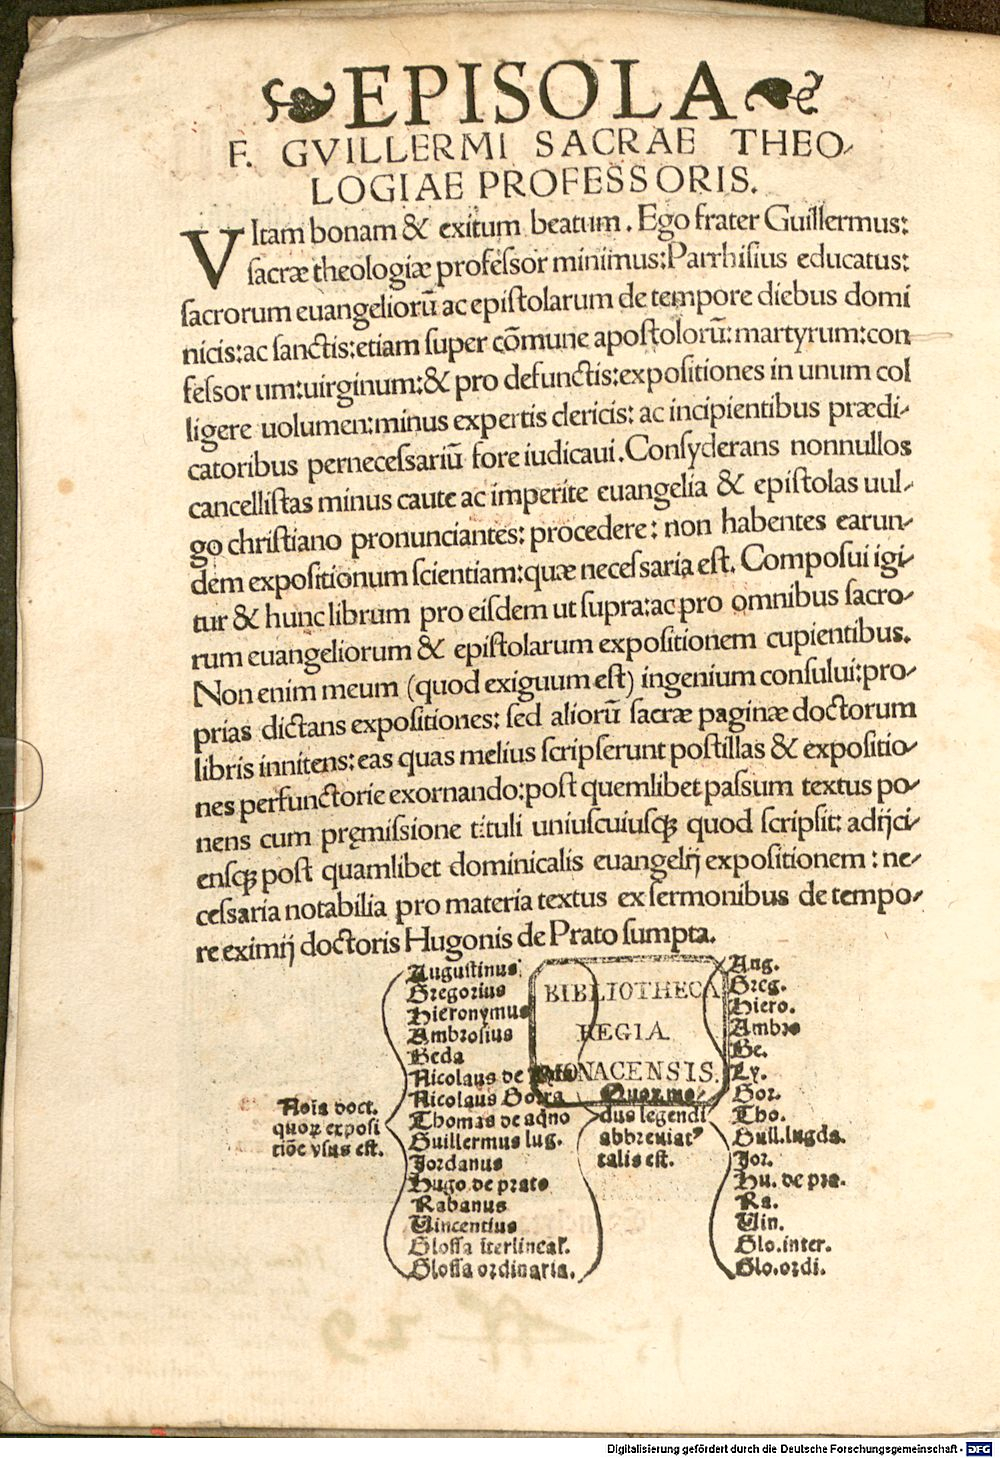 EPISOLA
F. GVILLERMI SACRAE THEO-
LOGIAE PROFESSORIS.
VItam bonam & exitum beatum. Ego frater Guillermus:
sacræ theologiæ professor minimus: Parrhisius educatus:
sacrorum euangeliorū ac epistolarum de tempore diebus domi
nicis: ac sanctis: etiam super cōmune apostolorū: martyrum: con
fessorum: uirginum: & pro defunctis: expositiones in unum col
ligere uolumen: minus expertis clericis: ac incipientibus prædi-
catoribus pernecessariū fore iudicaui. Consyderans nonnullos
cancellistas minus caute ac imperite euangelia & epistolas uul-
go christiano pronunciantes: procedere: non habentes earun-
dem expositionum scientiam: quæ necessaria est. Composui igi-
tur & hunc librum pro eisdem ut supra: ac pro omnibus sacro-
rum euangeliorum & epistolarum expositionem cupientibus.
Non enim meum (quod exiguum est) ingenium consului: pro-
prias dictans expositiones: sed aliorū sacræ paginæ doctorum
libris innitens: eas quas melius scripserunt postillas & expositio-
nes perfunctorie exornando: post quemlibet passum textus po-
nens cum pręmissione tituli uniuscuiusqꝫ quod scripsit: adijci-
ensqꝫ post quamlibet dominicalis euangelij expositionem: ne-
cessaria notabilia pro materia textus ex sermonibus de tempo-
re eximij doctoris Hugonis de Prato sumpta.
Noīa doct.
quoꝝ exposi
tiōe vsus est.
Augustinus
Gregorius
Hieronymus
Ambrosius
Beda
Nicolaus de
Nicolaus Gorra
Thomas de aqno
Guillermus lug.
Jordanus
Hugo de prato
Rabanus
Vincentius
Glossa īterlinear.
Glossa ordinaria.
BIBLIOTHECA
REGIA
MONACENSIS.
Quoꝝ mo-
dus legendi
abbreuiatꝰ
talis est.
Aug.
Greg.
Hiero.
Ambro
Be.
Ly.
Gor.
Tho.
Guil. lugdu.
Jor.
Hu. de pra.
Ra.
Vin.
Glo. inter.
Glo. ordi.
Digitalisierung gefördert durch die Deutsche Forschungsgemeinschaft - DFG